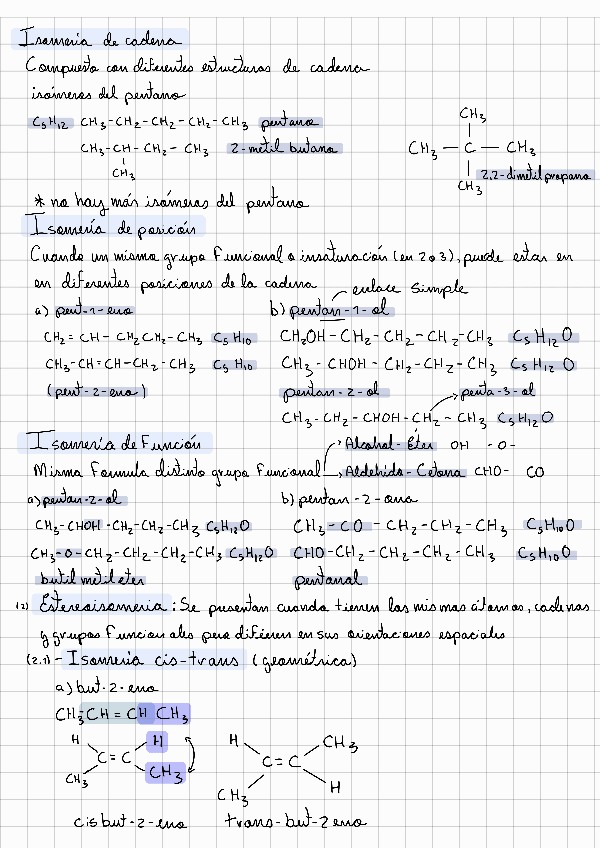 Isomería de cadena
Compuesto con diferentes estructuras de cadena
isómeros del pentano
C5H12 CH3-CH2-CH2-CH2-CH3 pentano
CH3-CH-CH2-CH3 2-metil butano
CH3
CH3
CH3 - C - CH3
CH3
2,2-dimetilpropano
* no hay más isómeros del pentano
Isomería de posición
Cuando un mismo grupo funcional o insaturación (en 2 o 3), puede estar en
en diferentes posiciones de la cadena
enlace simple
a) pent-1-eno b) pentan-1-ol
CH2=CH-CH2CH2-CH3 C5H10 CH2OH-CH2-CH2-CH2-CH3 C5H12O
CH3-CH=CH-CH2-CH3 C5H10 CH3-CHOH-CH2-CH2-CH3 C5H12O
(pent-2-eno) pentan-2-ol penta-3-ol
CH3-CH2-CHOH-CH2-CH3 C5H12O
Isomería de Función Alcohol-Éter OH -O-
Misma Formula distinto grupo Funcional Aldehído-Cetona CHO- CO
a) pentan-2-ol b) pentan-2-ona
CH3-CHOH-CH2-CH2-CH3 C5H12O CH3-CO-CH2-CH2-CH3 C5H10O
CH3-O-CH2-CH2-CH2-CH3 C5H12O CHO-CH2-CH2-CH2-CH3 C5H10O
butil metil eter pentanal
(2) Estereoisomeria: Se presentan cuando tienen los mismos átomos, cadenas
y grupos Funcionales pero difieren en sus orientaciones espaciales
(2.1)- Isomería cis-trans (geométrica)
a) but-2-eno
CH3CH=CH CH3
H H H CH3
C=C C=C
CH3 CH3 CH3 H
cis but-2-eno trans-but-2 eno